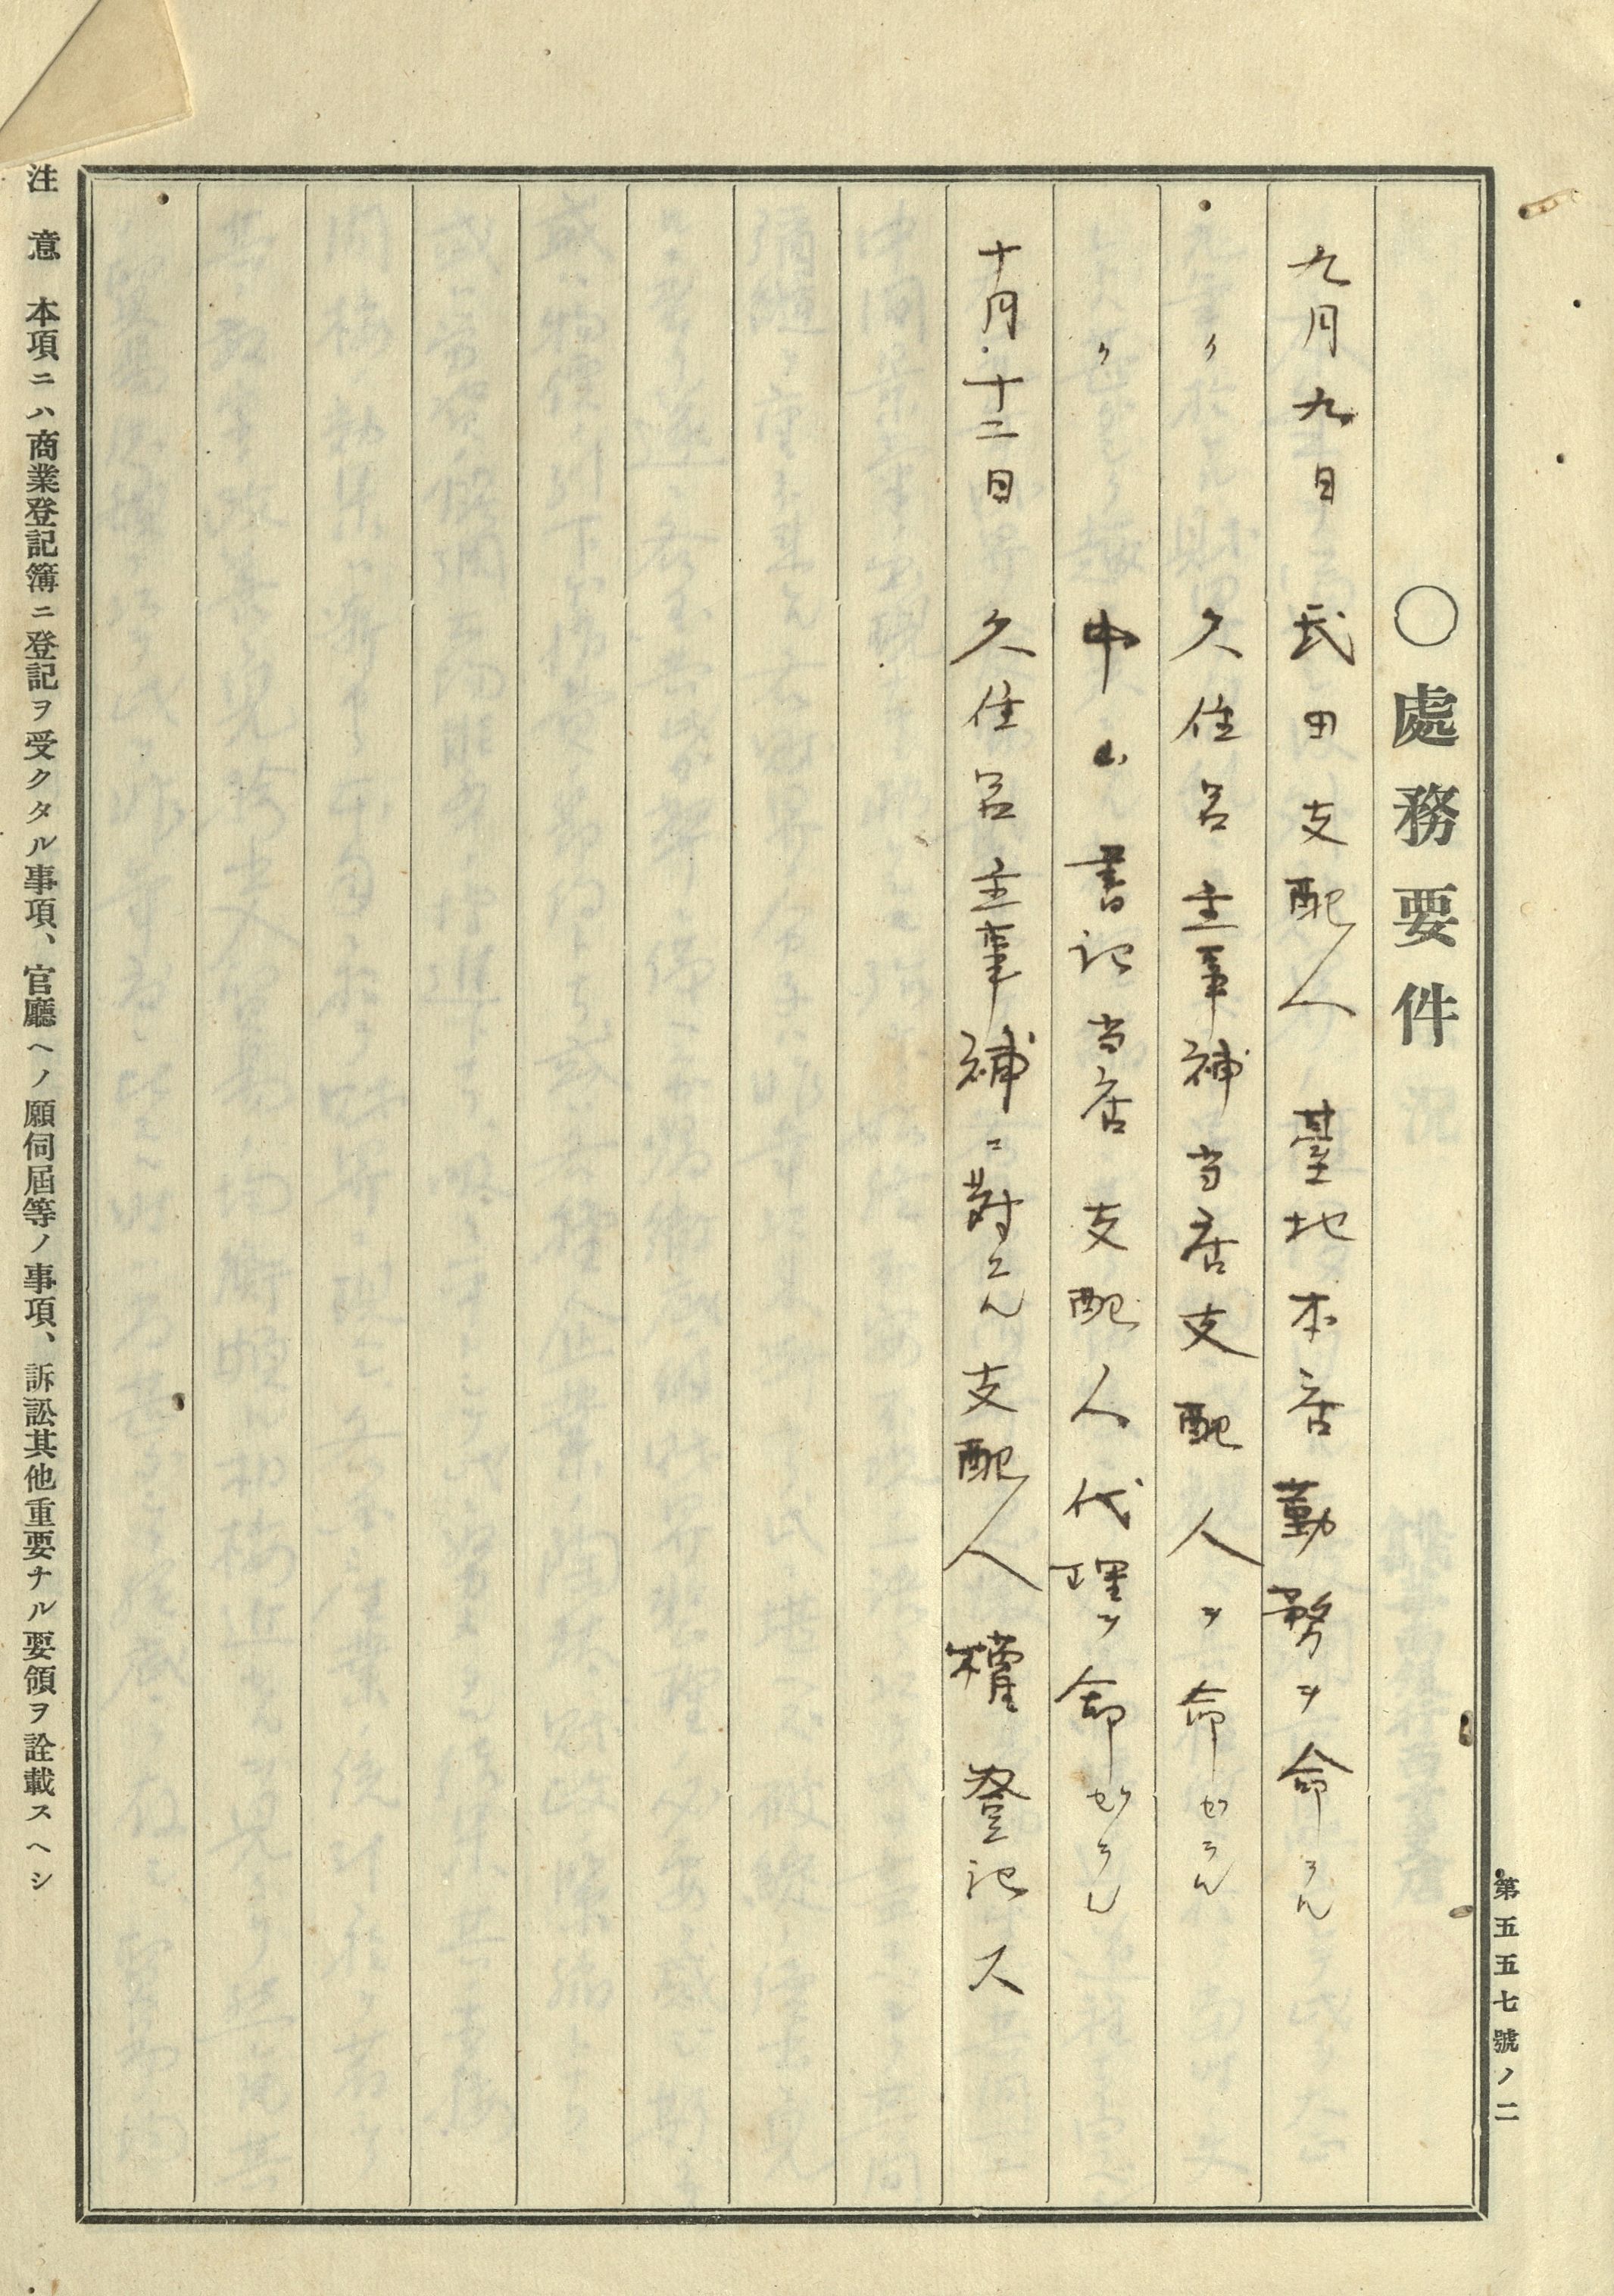 第五五七號ノ二
〇處務要件
九月九日 武田支配人 臺地本店勤務ヲ命ラル
〃 久住呂主事補当店支配人ヲ命セラル
〃 中山書記当店支配人代理ヲ命セラル
十月十二日 久住呂主事補ニ對スル支配人權登記ス
注意 本項ニハ商業登記簿ニ登記ヲ受クタル事項、官廳ヘノ願伺屆等ノ事項、訴訟其他重要ナル要領ヲ詮載スヘシ